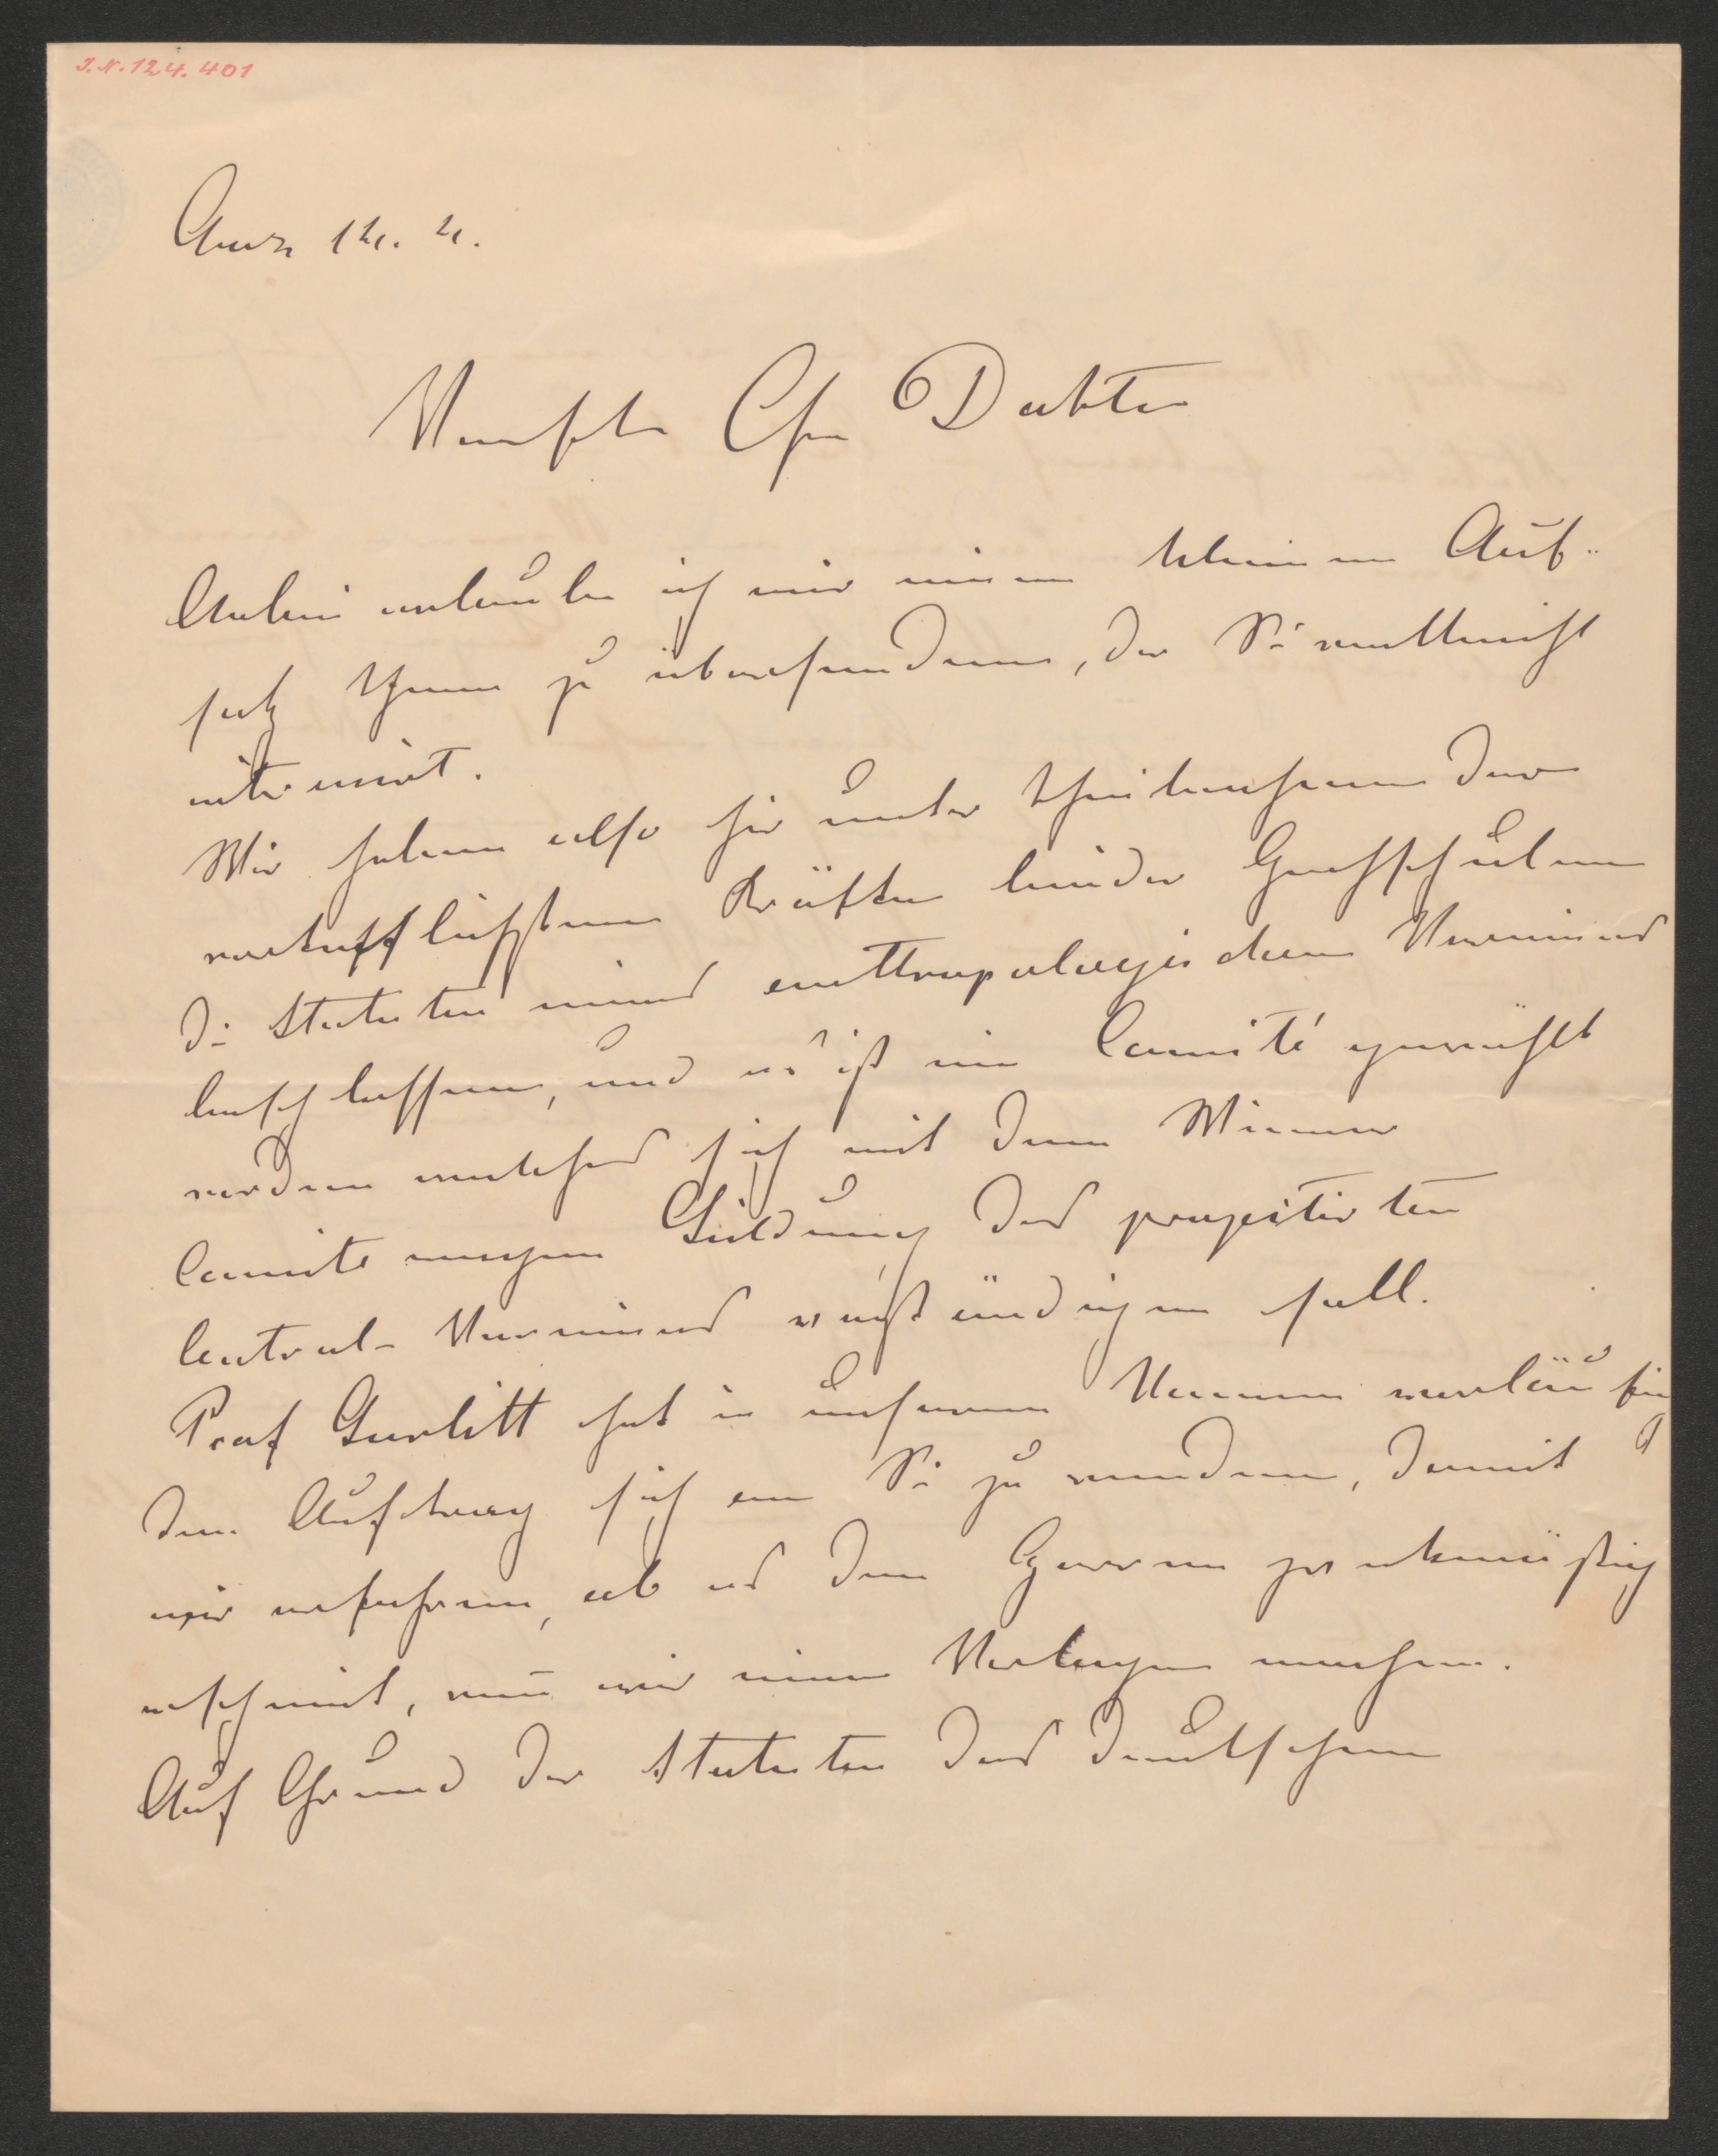 I.N. 124.401
Graz
Verehrter Herr Doktor
Anbei erlaube ich mir einen kleinen Auf-
satz Ihnen zu übersenden, der Sie vielleicht
interessirt.
Wir haben also hier unter Theilnahme der
vortrefflichsten Kräfte beider Hochschulen
die Statuten eines anthropologischen Vereines
beschlossen, und es ist ein Comité gewählt
worden welches sich mit dem Wiener
Comite wegen Bildung des projectirten
Central-Vereines verständigen soll.
Prof Gurlitt hat in unserem Namen vorläufig
den Auftrag sich an Sie zu wenden, damit
wir erfahren, ob es den Herren zweckmäßig
erscheint, wenn wir einen Vorlagen machen.
Auf Grund der Statuten des Deutschen